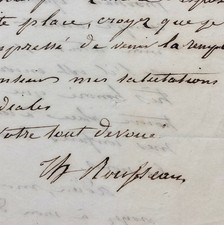 te place, croyez que je
pressé de venir la remp
mes salutations
diales
Votre tout dévoué
Th Rousseau